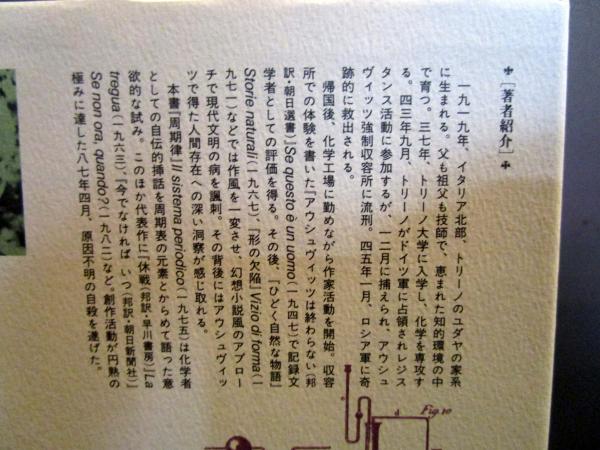 ✢[著者紹介]✢
一九一九年、イタリア北部、トリーノのユダヤの家系
に生まれる。父も祖父も技師で、恵まれた知的環境の中
で育つ。三七年、トリーノ大学に入学し、化学を専攻す
る。四三年九月、トリーノがドイツ軍に占領されレジス
タンス活動に参加するが、一二月に捕えられ、アウシュ
ヴィッツ強制収容所に流刑。四五年一月、ロシア軍に奇
跡的に救出される。
帰国後、化学工場に勤めながら作家活動を開始。収容
所での体験を書いた『アウシュヴィッツは終わらない(邦
訳・朝日選書)』Se questo è un uomo(一九四七)で記録文
学者としての評価を得る。その後、『ひどく自然な物語』
Storie naturali(一九六七)、『形の欠陥』Vizio di forma(一
九七一)などでは作風を一変させ、幻想小説風のアプロー
チで現代文明の病を諷刺。その背後にはアウシュヴィッ
ツで得た人間存在への深い洞察が感じ取れる。
本書『周期律』Il sistema periodico(一九七五)は化学者
としての自伝的挿話を周期表の元素とからめて語った意
欲的な試み。このほか代表作に『休戦(邦訳・早川書房)』La
tregua(一九六三)、『今でなければ いつ(邦訳・朝日新聞社)』
Se non ora, quando?(一九八二)など。創作活動が円熟の
極みに達した八七年四月、原因不明の自殺を遂げた。
Fig.10
d